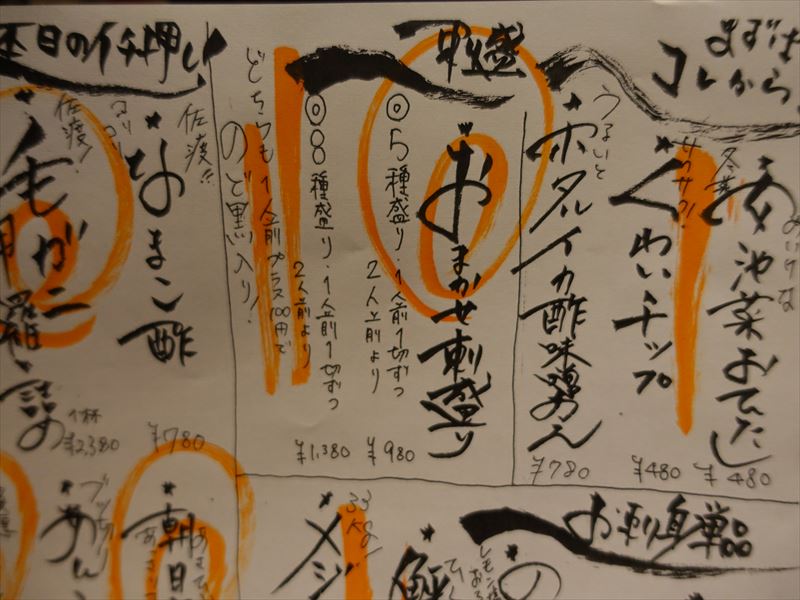 まずは
コレから
冬季
女池菜おひたし
¥480
サクサク!
くわいチップ
¥480
うるいと
ホタルイカ酢味噌あえ
¥780
刺盛
おまかせ刺盛り
◎5種盛り・1人前1切ずつ
2人前より
¥980
◎8種盛り・1人前1切ずつ
2人前より
¥1,380
どちらも1人前プラス100円で
のど黒入り!
本日のイチ押し
佐渡!!
なまこ酢
¥780
佐渡!
毛がに
甲羅詰め
1杯
¥2,380
お刺身単品
33kg!
メジ
レモン
朝日
ブツ切り
あん